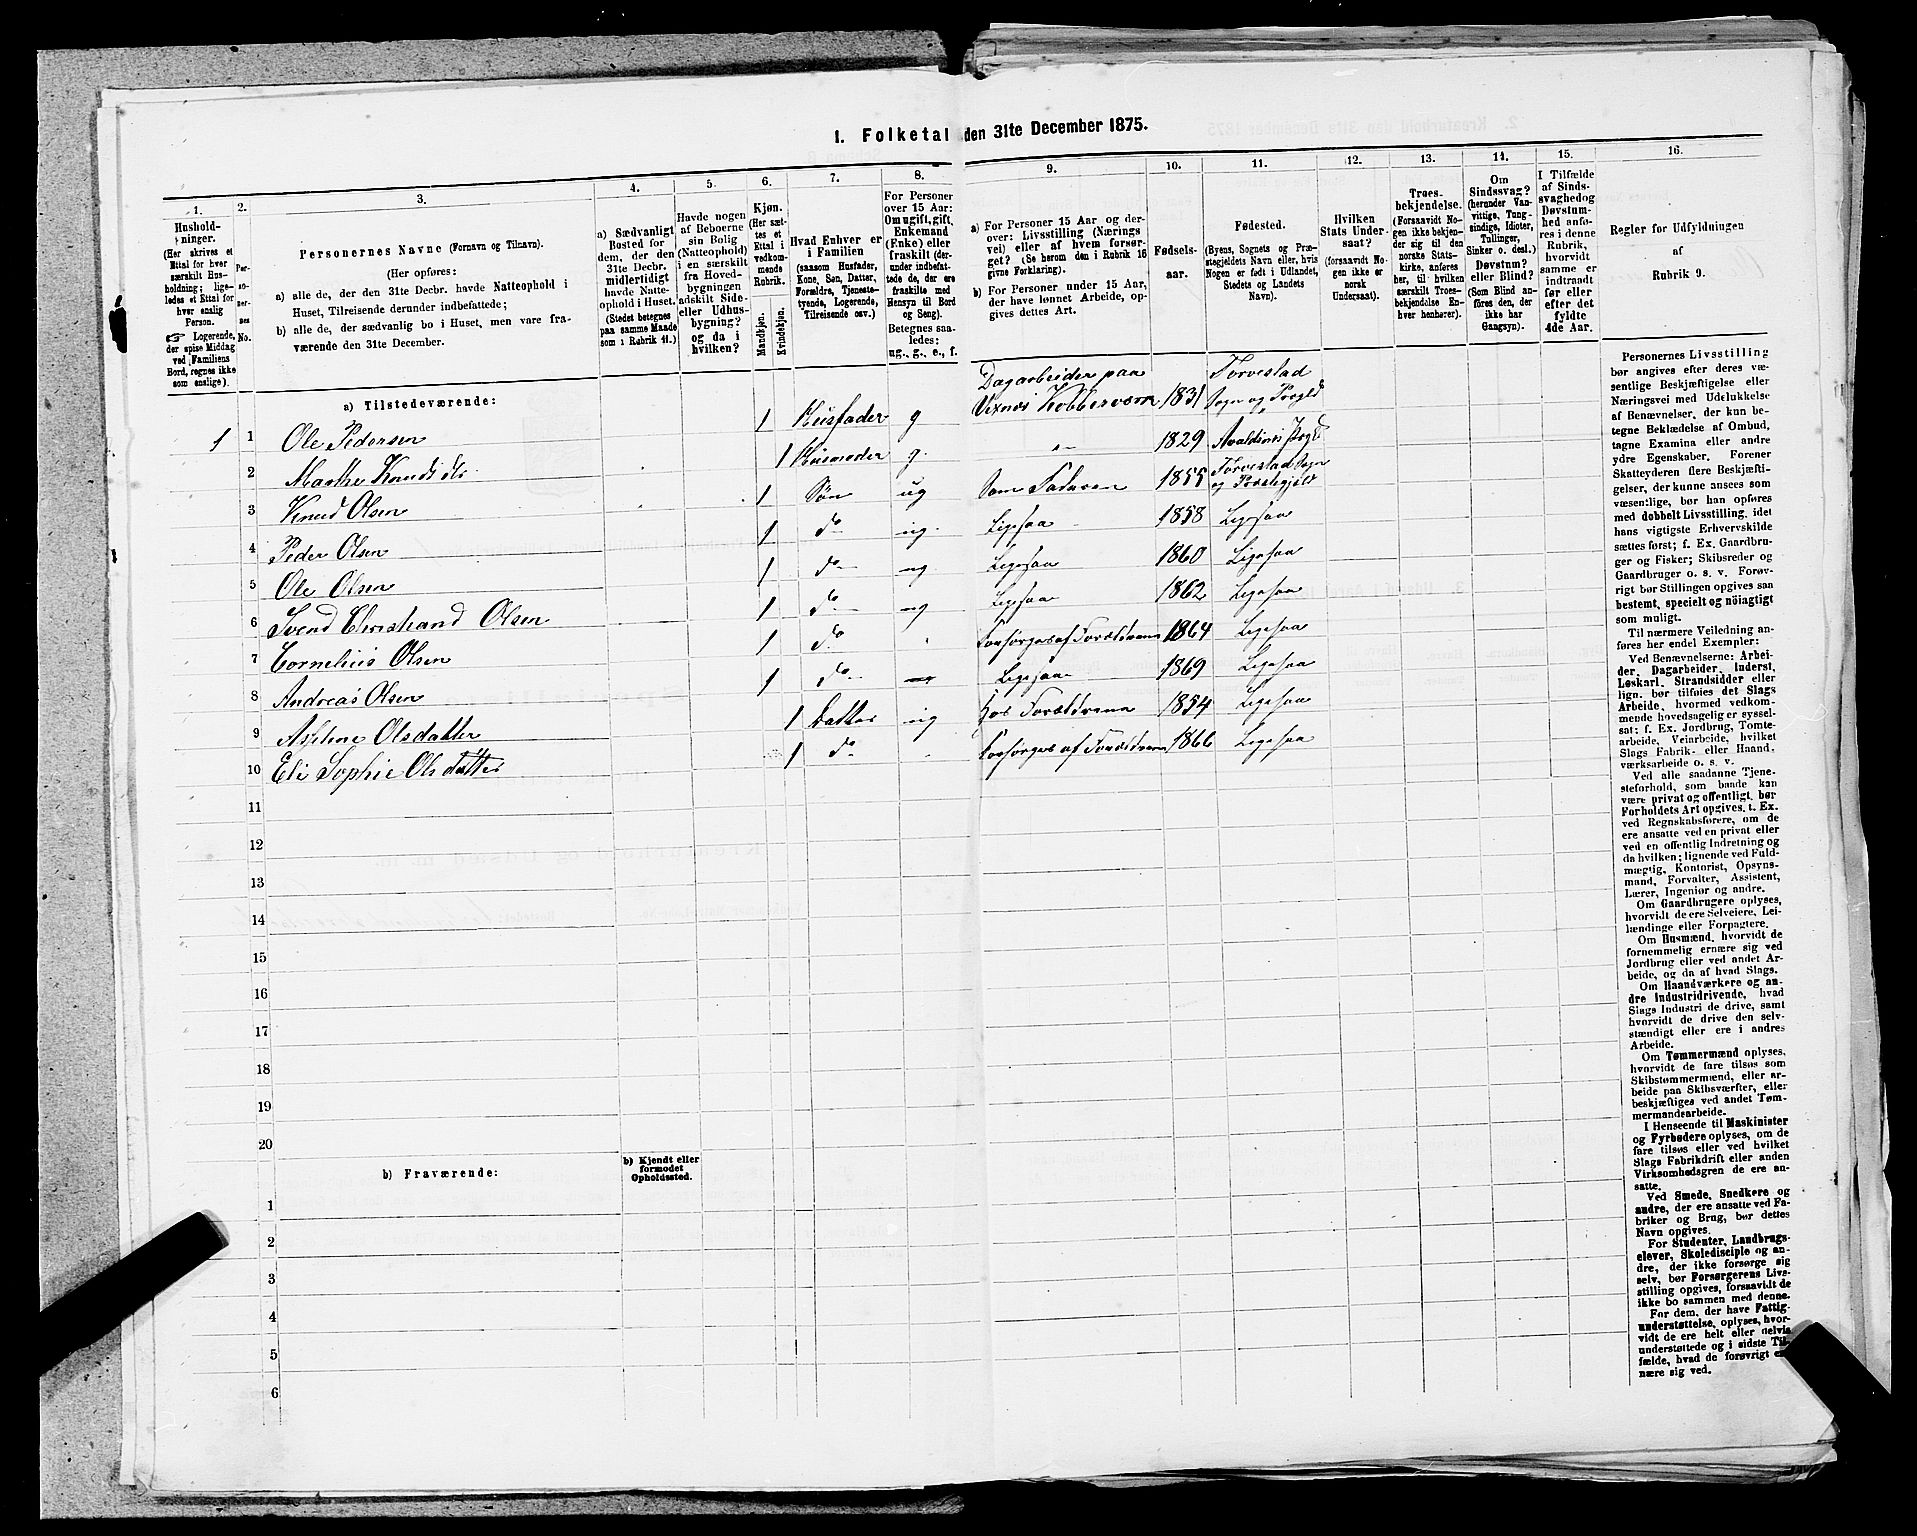 1. Folketal den 31te December 1875.
1. 2. 3. 4. 5. 6. 7. 8. 9. 10. 11. 12. 13. 14. 15. 16.
Hushold-
ninger.
(Her skrives et
Ettal for hver
særskilt Hus-
holdning; lige-
ledes et Ettal for
hver enslig
Person.
☞ Logerende,
der spise Middag
ved Familiens
Bord, regnes ikke
som enslige).
Per-
so-
ner-
nes
No.
Personernes Navne (Fornavn og Tilnavn).
(Her opføres:
a) alle de, der den 31te Decbr. havde Natteophold i
Huset, Tilreisende derunder indbefattede;
b) alle de, der sædvanlig bo i Huset, men vare fra-
værende den 31te December.
a) Sædvanligt
Bosted for
dem, der den
31te Decbr.
midlertidigt
havde Natte-
ophold i Huset.
(Stedet betegnes
paa samme Maade
som i Rubrik 11.)
Havde nogen
af Beboerne
sin Bolig
(Natteophold)
i en særskilt
fra Hoved-
bygningen
adskilt Side-
eller Udhus-
bygning?
og da i
hvilken?
Kjøn.
(Her sæt-
tes et
Ettal i
vedkom-
mende
Rubrik.
Mandkjøn.
Kvindekjøn.
Hvad Enhver er
i Familien
(saasom Husfader,
Kone, Søn, Datter,
Forældre, Tjeneste-
tyende, Logerende,
Tilreisende osv.)
For Personer
over 15 Aar:
Om ugift, gift,
Enkemand
(Enke) eller
fraskilt (der-
under indbefat-
tede de, der ere
fraskilte med
Hensyn til Bord
og Seng).
Betegnes saa-
ledes:
ug., g., e., f.
a) For Personer 15 Aar og der-
over: Livsstilling (Nærings
vei) eller af hvem forsør-
get? (Se herom den i Rubrik 16
givne Forklaring).
b) For Personer under 15 Aar,
der have lønnet Arbeide, op-
gives dettes Art.
Fødsels-
aar.
Fødested.
(Byens, Sognets og Præ-
stegjeldets Navn eller, hvis
Nogen er født i Udlandet,
Stedets og Landets
Navn).
Hvilken
Stats Under-
saat?
(forsaavidt No-
gen ikke er
norsk
Undersaat).
Troes-
bekjendelse.
(Forsaavidt No-
gen ikke bekjen-
der sig til den
norske Stats-
kirke, anføres
her, til hvilken
særskilt Troes-
bekjendelse En-
hver henhører).
Om
Sindssvag?
(herunder Van-
vittige, Tung-
sindige, Idioter,
Tullinger,
Sinker o. desl.)
Døvstum?
eller Blind?
(Som Blind an-
føres den, der
ikke har
Gangsyn).
I Tilfælde
af Sinds-
svaghed og
Døvstum-
hed anfø-
res i denne
Rubrik,
hvorvidt
samme er
indtraadt
før eller
efter det
fyldte
4de Aar.
Regler for Udfyldningen
af
Rubrik 9.
a) Tilstedeværende:
1 1 Ole Pedersen 1 Husfader g Dagarbeider paa Vixnes Kobberværn 1831 Torvestad Sogn og Prgld
2 Marthe Knudsdtr 1 Husmoder g. „ 1829 Avaldsnes Prgld
3 Knud Olsen 1 Søn ug Som Faderen 1855 Torvestad Sogn og Præstegjeld
4 Peder Olsen 1 do ug. Ligesaa 1858 Ligesaa
5 Ole Olsen 1 do ug Ligesaa 1860 Ligesaa
6 Svend Christhand Olsen 1 do ug Ligesaa 1862 Ligesaa
7 Cornelius Olsen 1 do Forsørges af Forældrene 1864 Ligesaa
8 Andreas Olsen 1 do Ligesaa 1869 Ligesaa
9 Olsdatter 1 Datter ug Hos Forældrene 1854 Ligesaa
10 Eli Sophie Olsdatter 1 do Forsørges af Forældrene 1866 Ligesaa
11
12
13
14
15
16
17
18
19
20
b) Fraværende:
b) Kjendt eller
formodet
Opholdssted.
1
2
3
4
5
6
Personernes Livsstilling
bør angives efter deres væ-
sentlige Beskjæftigelse eller
Næringsvei med Udelukkelse
af Benævnelser, der kun be-
tegne Beklædelse af Ombud,
tagne Examina eller andre
ydre Egenskaber. Forener
Skatteyderen flere Beskjæfti-
gelser, der kunne ansees som
væsentlige, bør han opføres
med dobbelt Livsstilling, idet
hans vigtigste Erhvervskilde
sættes først; f. Ex. Gaardbru-
ger og Fisker; Skibsreder og
Gaardbruger o. s. v. Forøv-
rigt bør Stillingen opgives saa
bestemt, specielt og nöiagtigt
som muligt.
Til nærmere Veiledning an-
føres her endel Exempler:
Ved Benævnelserne: Arbei-
der, Dagarbeider, Inderst,
Løskarl, Strandsidder eller
lign. bør tilføies det Slags
Arbeide, hvormed vedkom-
mende hovedsagelig er syssel-
sat; f. Ex. Jordbrug, Tomte-
arbeide, Veiarbeide, hvilket
Slags Fabrik- eller Haand-
værksarbeide o. s. v.
Ved alle saadanne Tjene-
steforhold, som baade kan
være privat og offentligt, bør
Forholdets Art opgives. t. Ex.
ved Regnskabsførere, om de
ere ansatte ved en privat eller
ved en offentlig Indretning og
da hvilken; lignende ved Fuld-
mægtig, Kontorist, Opsyns-
mand, Forvalter, Assistent,
Lærer, Ingeniør og andre.
Om Gaardbrugere oplyses,
hvorvidt de ere Selveiere, Lei-
lændinge eller Forpagtere.
Om Husmænd, hvorvidt de
fornemmelig ernære sig ved
Jordbrug eller ved andet Ar-
beide, og da af hvad Slags.
Om Haandværkere og an-
dre Industridrivende, hvad
Slags Industri de drive, samt
hvorvidt de drive den selv-
stændigt eller ere i andres
Arbeide.
Om Tømmermænd oplyses,
hvorvidt de fare tilsøs som
Skibstømmermænd, eller ar-
beide paa Skibsværfter, eller
beskjæftiges ved andet Tøm-
mermandsarbeide.
I Henseende til Maskinister
og Fyrbødere oplyses, om de
fare tilsøs eller ved hvilket
Slags Fabrikdrift eller anden
Virksomhedsgren de ere an-
satte.
Ved Smede, Snedkere og
andre, der ere ansatte ved Fa-
briker og Brug, bør dettes
Navn opgives.
For Studenter, Landbrugs-
elever, Skoledisciple og an-
dre, der ikke forsørge sig
selv, bør Forsørgerens Livs-
stilling opgives, forsaavidt de
ikke bo sammen med denne.
For dem, der have Fattig-
understøttelse, oplyses, hvor-
vidt de ere helt eller delvis
understøttede og i sidste Til-
fælde, hvad de forøvrigt er-
nære sig ved.